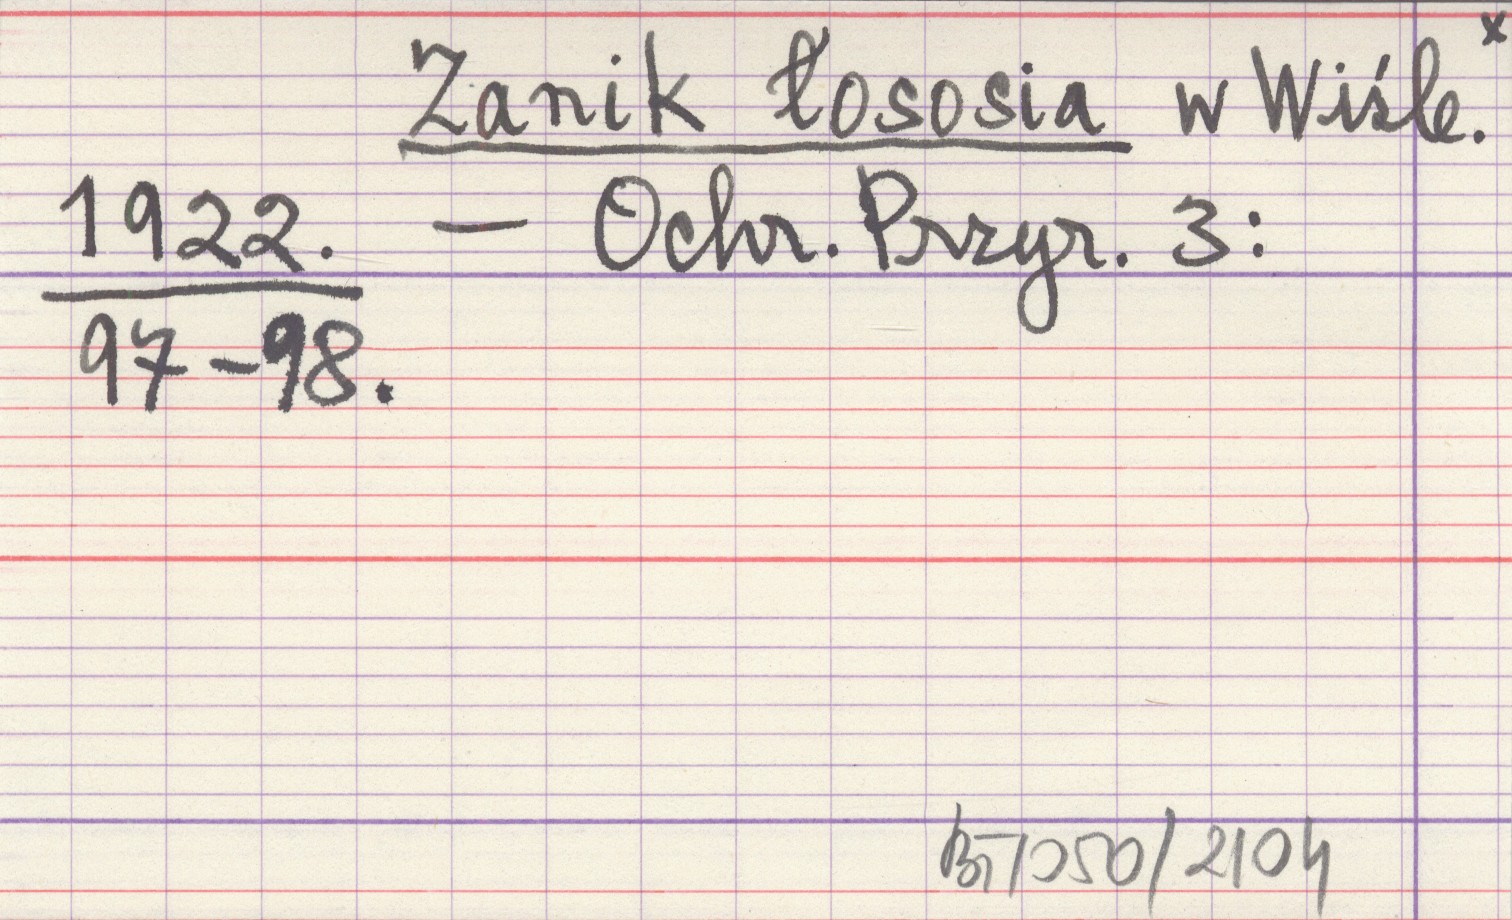 x
Zanik łososia w Wiśle.
1922. — Ochr. Przyr. 3:
97-98.
BT/050/2104